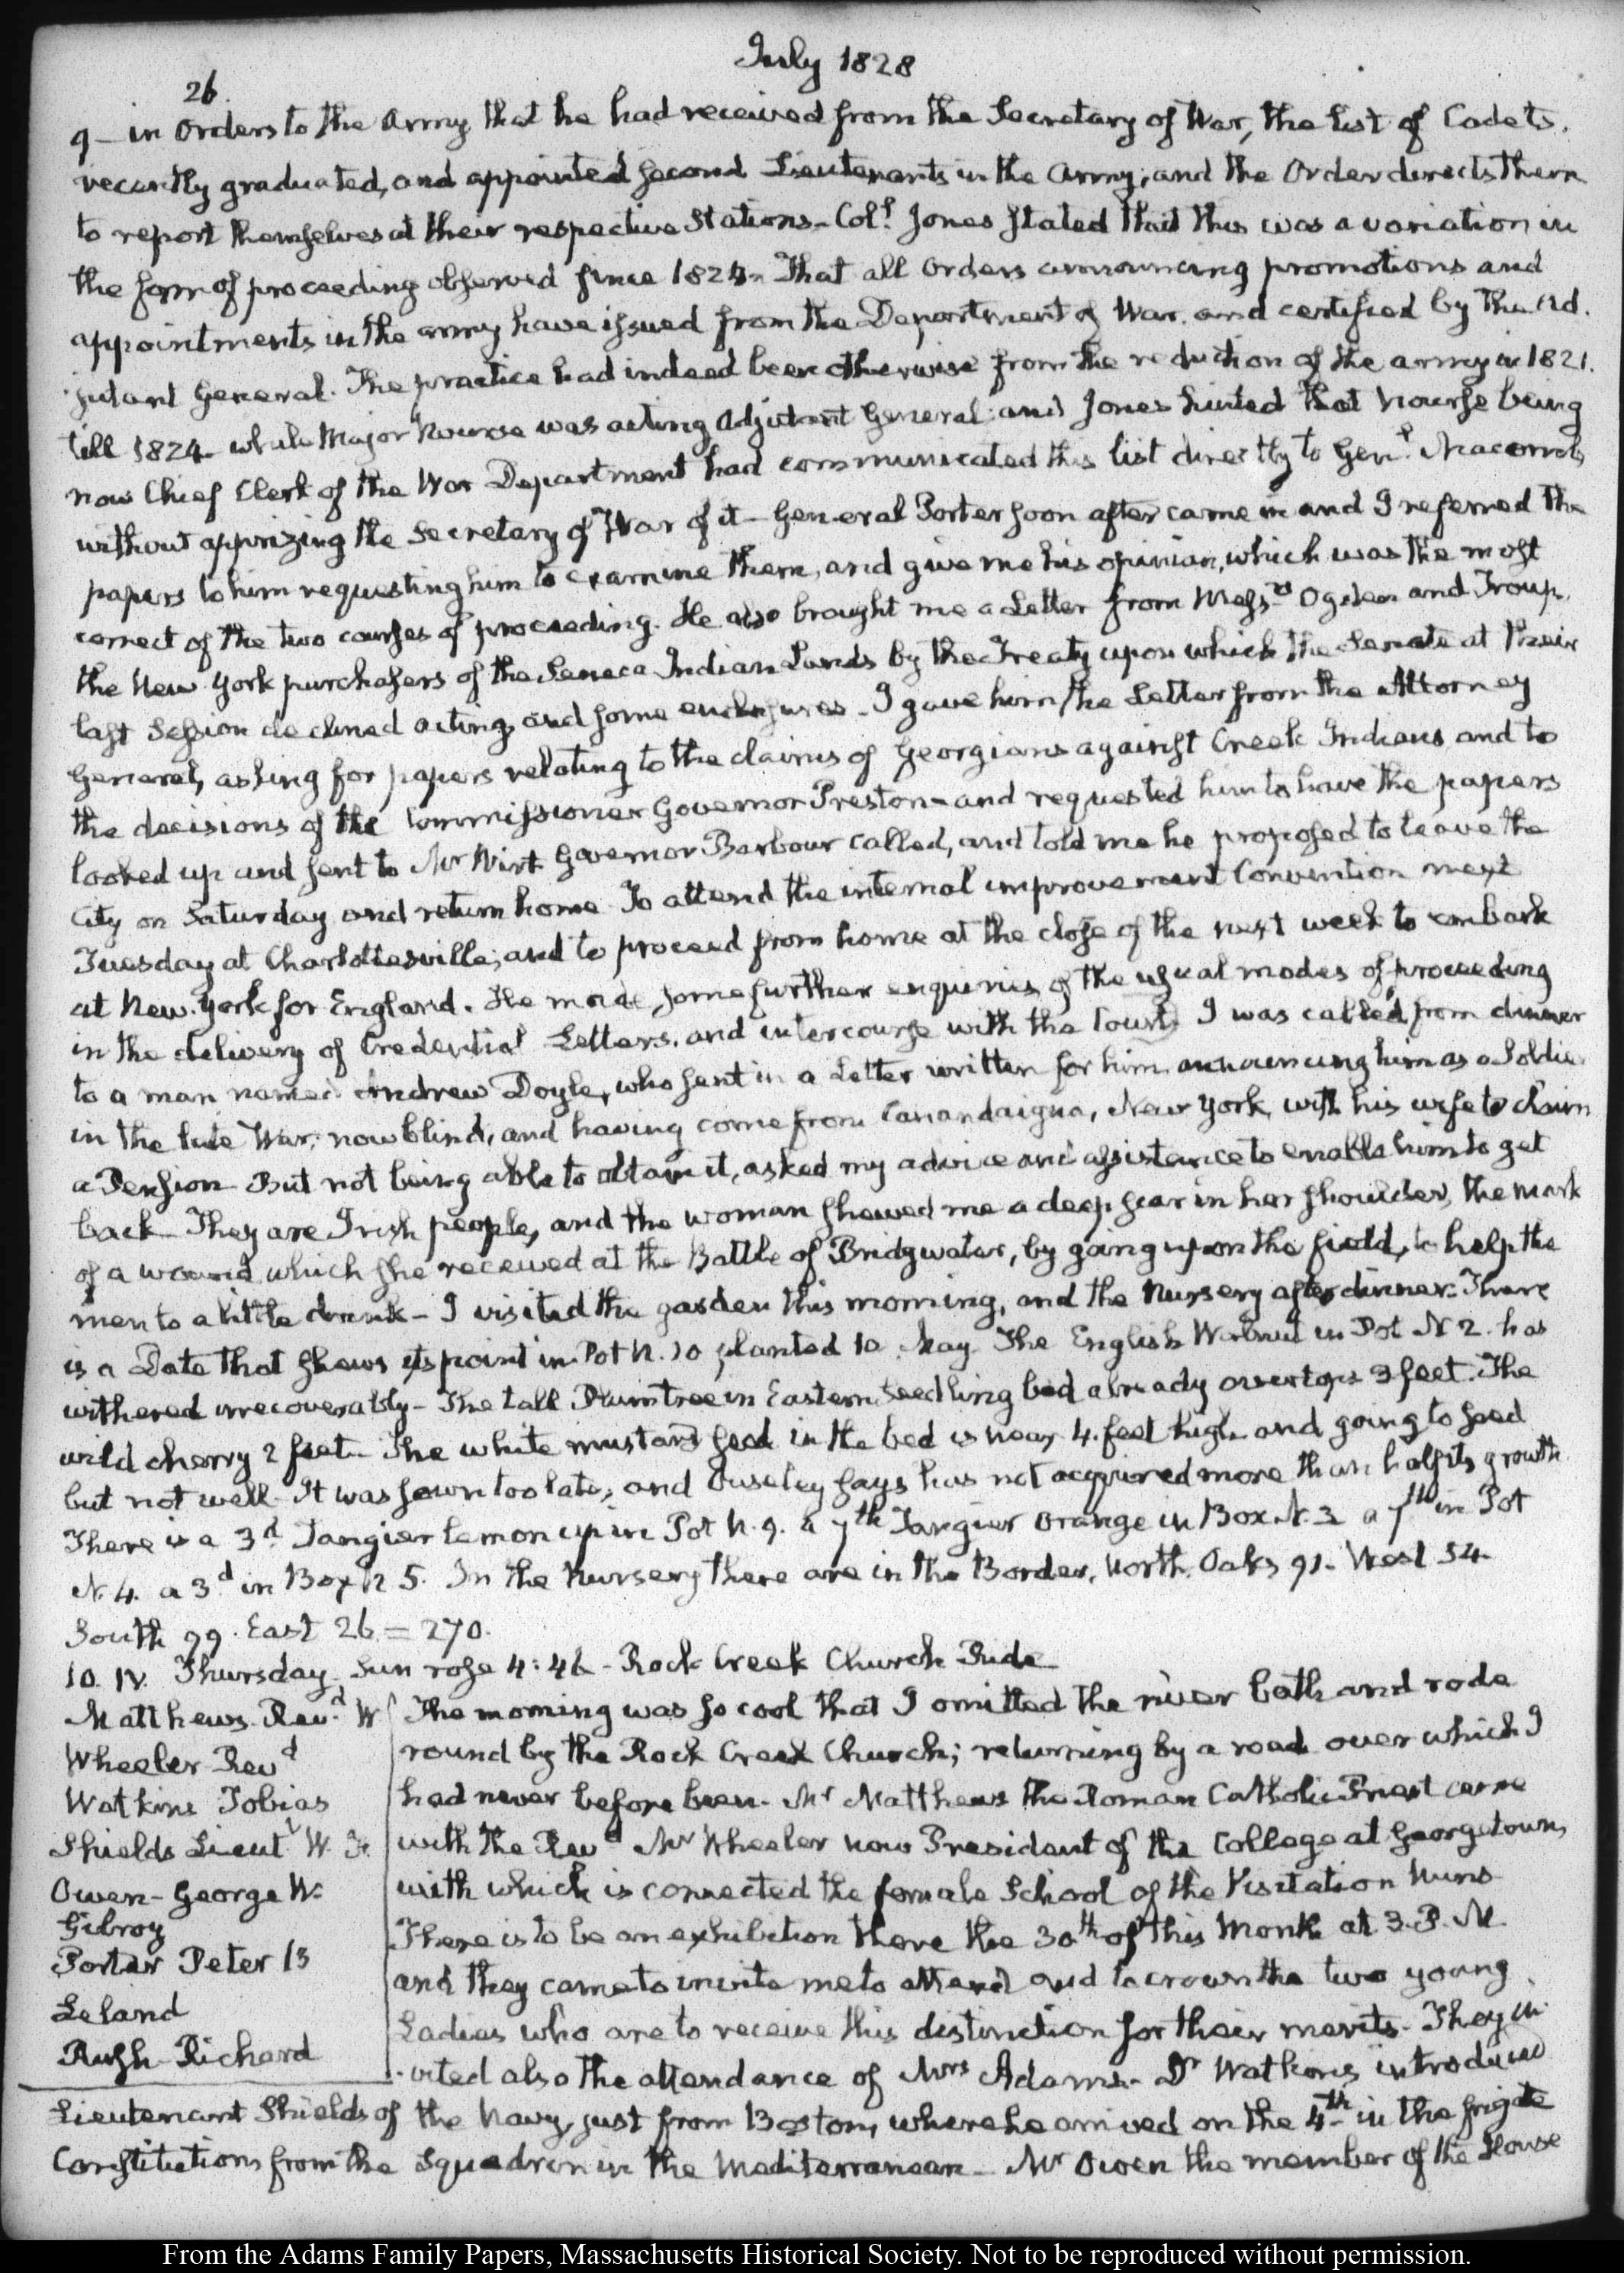 July 1828
26.
9 – in Orders to the Army, that he had received from the Secretary of War, the List of Cadets,
recently graduated, and appointed second Lieutenants in the Army; and the Order directs them
to report themselves at their respective Stations – Coll. Jones stated that this was a variation in
the form of proceeding observed since 1824 – That all Orders announcing promotions and
appointments in the army have issued from the Department of War, and certified by the Ad-
jutant General. The practice had indeed been otherwise from the reduction of the army in 1821.
till 1824 – while Major Nourse was acting Adjutant General: and Jones hinted that Nourse being
now Chief Clerk of the War Department had communicated this list directly to Genl. Macomb,
without apprizing the Secretary of War of it – General Porter soon after came in and I referred the
papers to him requesting him to examine them, and give me his opinion, which was the most
correct of the two courses of proceeding. He also brought me a Letter from Messrs. Ogden and Troup,
the New-York purchasers of the Seneca Indian Lands by the Treaty upon which the Senate at their
last Session declined acting, and some enclosures – I gave him the Letter from the Attorney
General, asking for papers relating to the claims of Georgians against Creek Indians, and to
the decisions of the Commissioner Governor Preston – and requested him to have the papers
looked up and sent to Mr Wirt. Governor Barbour called, and told me he proposed to leave the
City on Saturday and return home. To attend the internal improvement Convention next
Tuesday at Charlottesville; and to proceed from home at the close of the next week to embark
at New-York for England. He made some further enquiries of the usual modes of proceeding
in the delivery of Credential Letters, and intercourse with the Court. I was called from dinner
to a man named Andrew Doyle, who sent in a Letter written for him announcing him as a Soldier
in the late War, now blind, and having come from Canandaigua, New York, with his wife to claim
a Pension – But not being able to obtain it, asked my advice and assistance to enable him to get
back – They are Irish people, and the woman shewed me a deep scar in her shoulder, the mark
of a wound which she received at the Battle of Bridgwater, by going upon the field, to help the
men to a little drink – I visited the garden this morning, and the Nursery after dinner. There
is a Date that shews its point in Pot N. 10 planted 10. May. The English Walnut in Pot N 2. has
withered irrecoverably – The tall Plumtree in Eastern Seedling bed already overtops 3 feet. The
wild cherry 2 feet – The white mustard seed in the bed is near 4. feet high and going to seed
but not well – It was sown too late; and Ouseley says has not acquired more than half its growth.
There is a 3d. Tangier lemon up in Pot N. 9. a 7th Tangier Orange in Box N. 3 a 7th in Pot
N. 4. a 3d in Box N 5. In the Nursery there are in the Border, North. Oaks 91. West 54.
South 99. East 26 = 270.
10. IV. Thursday. Sun rose 4:46 – Rock Creek Church Ride
Matthews. Revd. W
Wheeler Revd
Watkins Tobias
Shields Lieut. W. F.
Owen – George W.
Gilroy
Porter Peter B
Leland
Rush – Richard
The morning was so cool that I omitted the river bath and rode
round by the Rock Creek Church; returning by a road over which I
had never before been. Mr Matthews the Roman Catholic Priest came
with the Revd Mr Wheeler now President of the College at Georgetown,
with which is connected the female School of the Visitation Nuns –
There is to be an exhibition there the 30th of this Month at 3. P. M.
and they came to invite me to attend and to crown the two young
Ladies who are to receive this distinction for their merits – They in-
-vited also the attendance of Mrs Adams – Dr Watkins introduced
Lieutenant Shields of the Navy, just from Boston, where he arrived on the 4th in the frigate
Constitution, from the Squadron in the Mediterranean – Mr Owen the member of the House
From the Adams Family Papers, Massachusetts Historical Society. Not to be reproduced without permission.